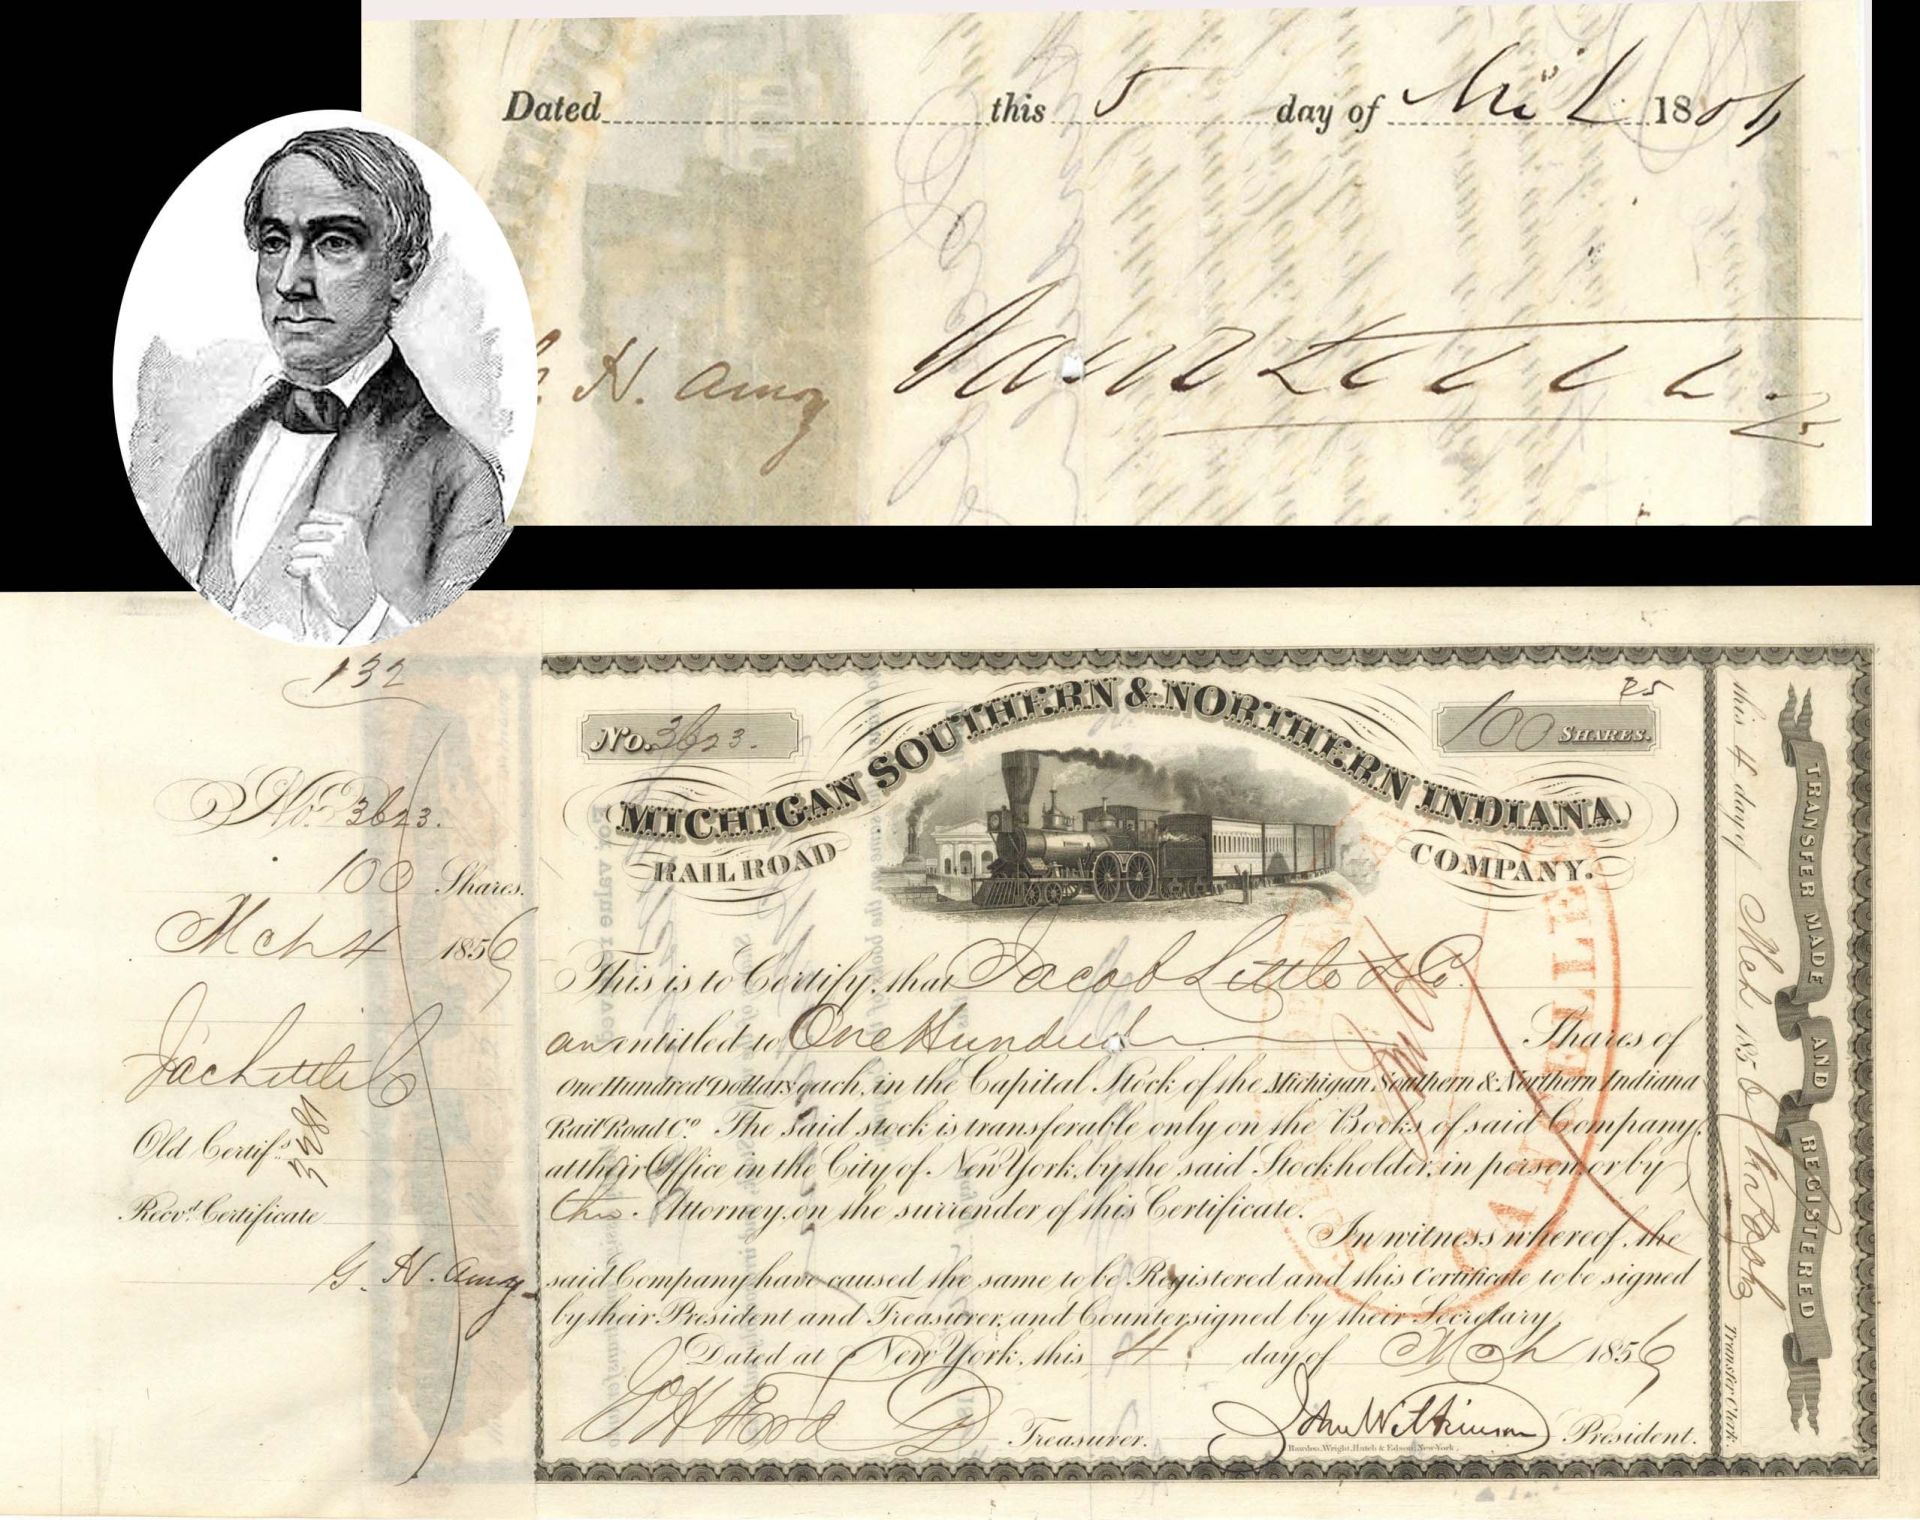 Dated this 5 day of 18
G. H. Amoy
132
No. 3623.
100 Shares.
Mch 4 1856
Jac Little Co
Old Certifs. 3281
Recvd. Certificate
G. H. Amoy
No. 3623.
100 SHARES.
MICHIGAN SOUTHERN & NORTHERN INDIANA
RAIL ROAD COMPANY.
This is to Certify, that Jacob Little & Co.
are entitled to One Hundred Shares of
One Hundred Dollars each, in the Capital Stock of the Michigan Southern & Northern Indiana
Rail Road Co. The said stock is transferable only on the Books of said Company,
at their Office in the City of New York, by the said Stockholder, in person, or by
Attorney, on the surrender of this Certificate.
In witness whereof, the
said Company have caused the same to be Registered and this Certificate to be signed
by their President and Treasurer, and Countersigned by their Secretary,
Dated at New York, this 4 day of Mch 1856
Treasurer. John Wilkinson President.
Rawdon, Wright, Hatch & Edson, New-York.
this 4 day of Mch 1856
Transfer Clerk.
TRANSFER MADE AND REGISTERED
CANCELLED